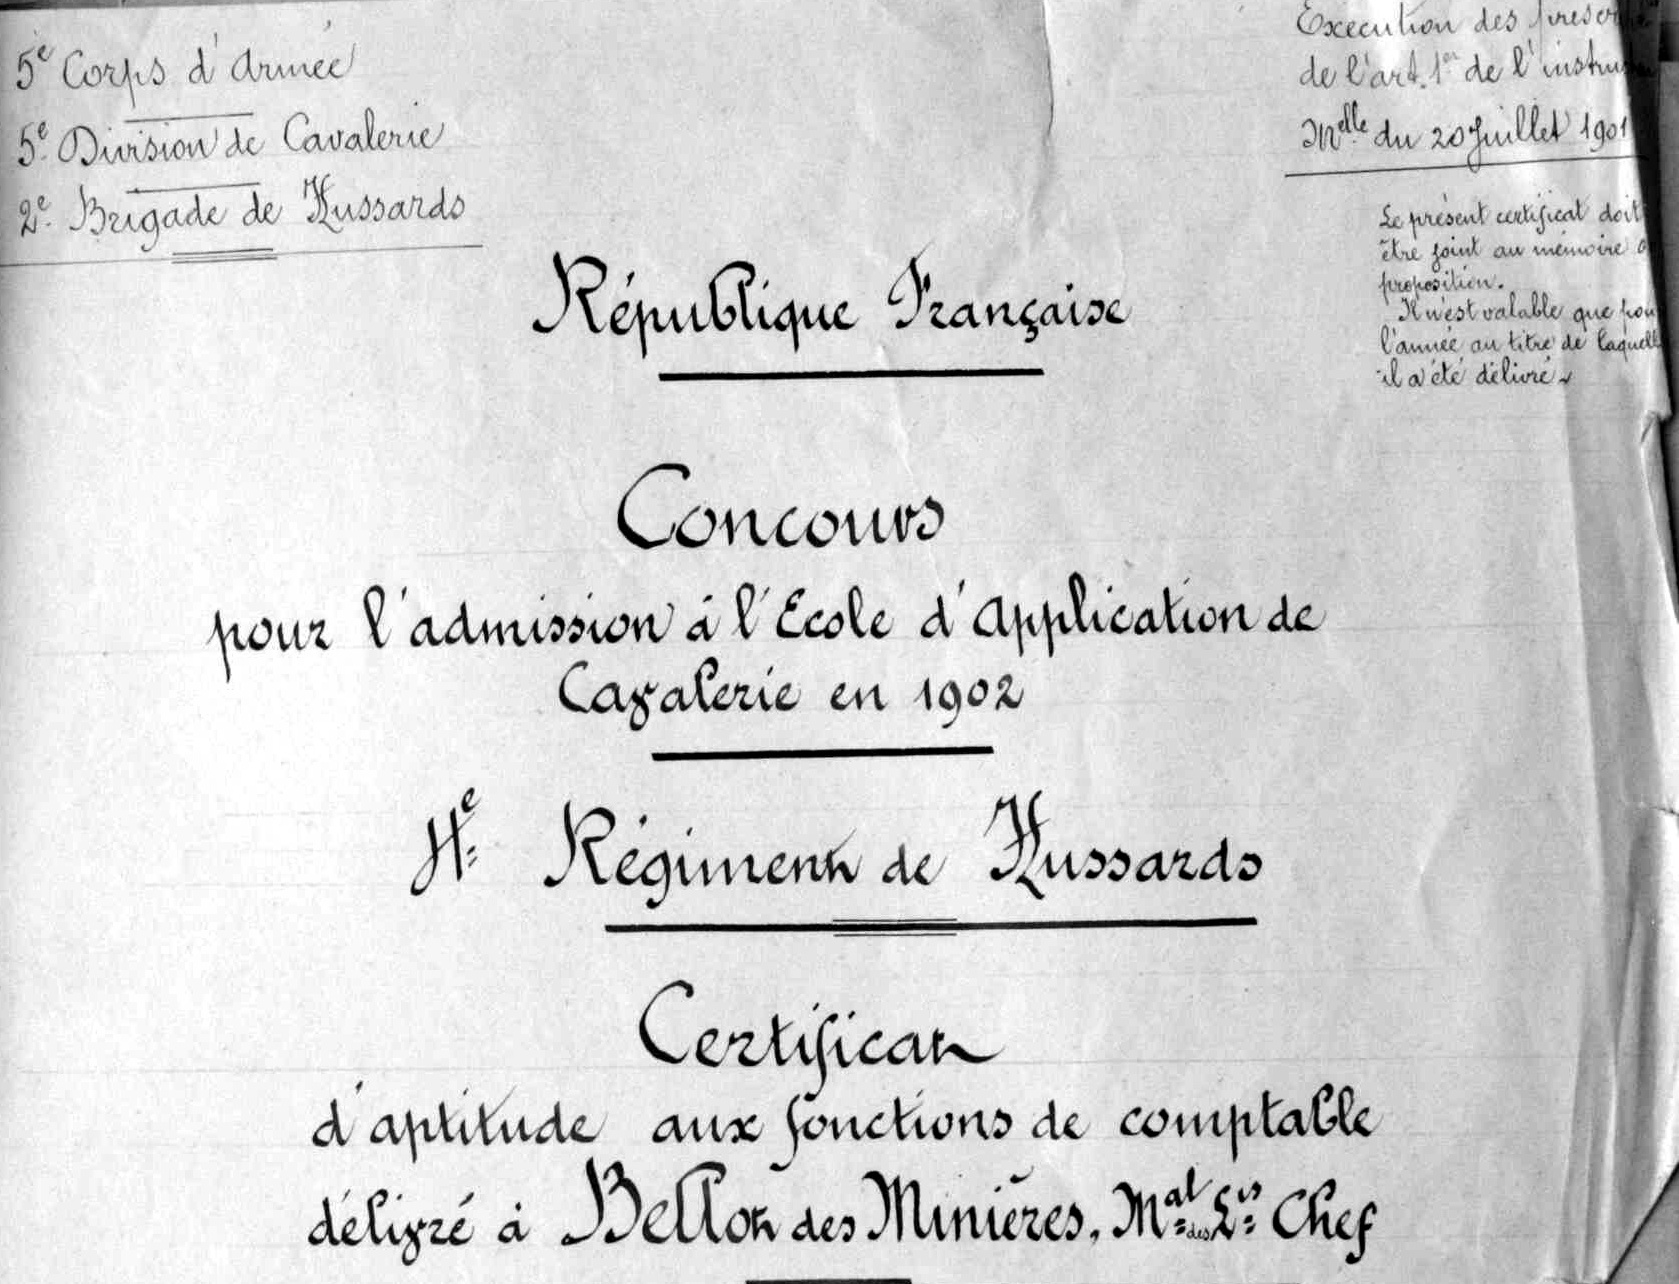 5e Corps d'Armée
5e Division de Cavalerie
2e Brigade de Hussards
Exécution des
de l'art. 1er de l'
Melle du 20 Juillet 1901
Le présent certificat doit
être joint au mémoire
proposition.
Il n'est valable que
l'année au titre de
il a été délivré.
République Française
Concours
pour l'admission à l'Ecole d'Application de
Cavalerie en 1902
Régiment de Hussards
Certificat
d'aptitude aux fonctions de comptable
délivré à Bellot des Minières, Mal des Lis Chef